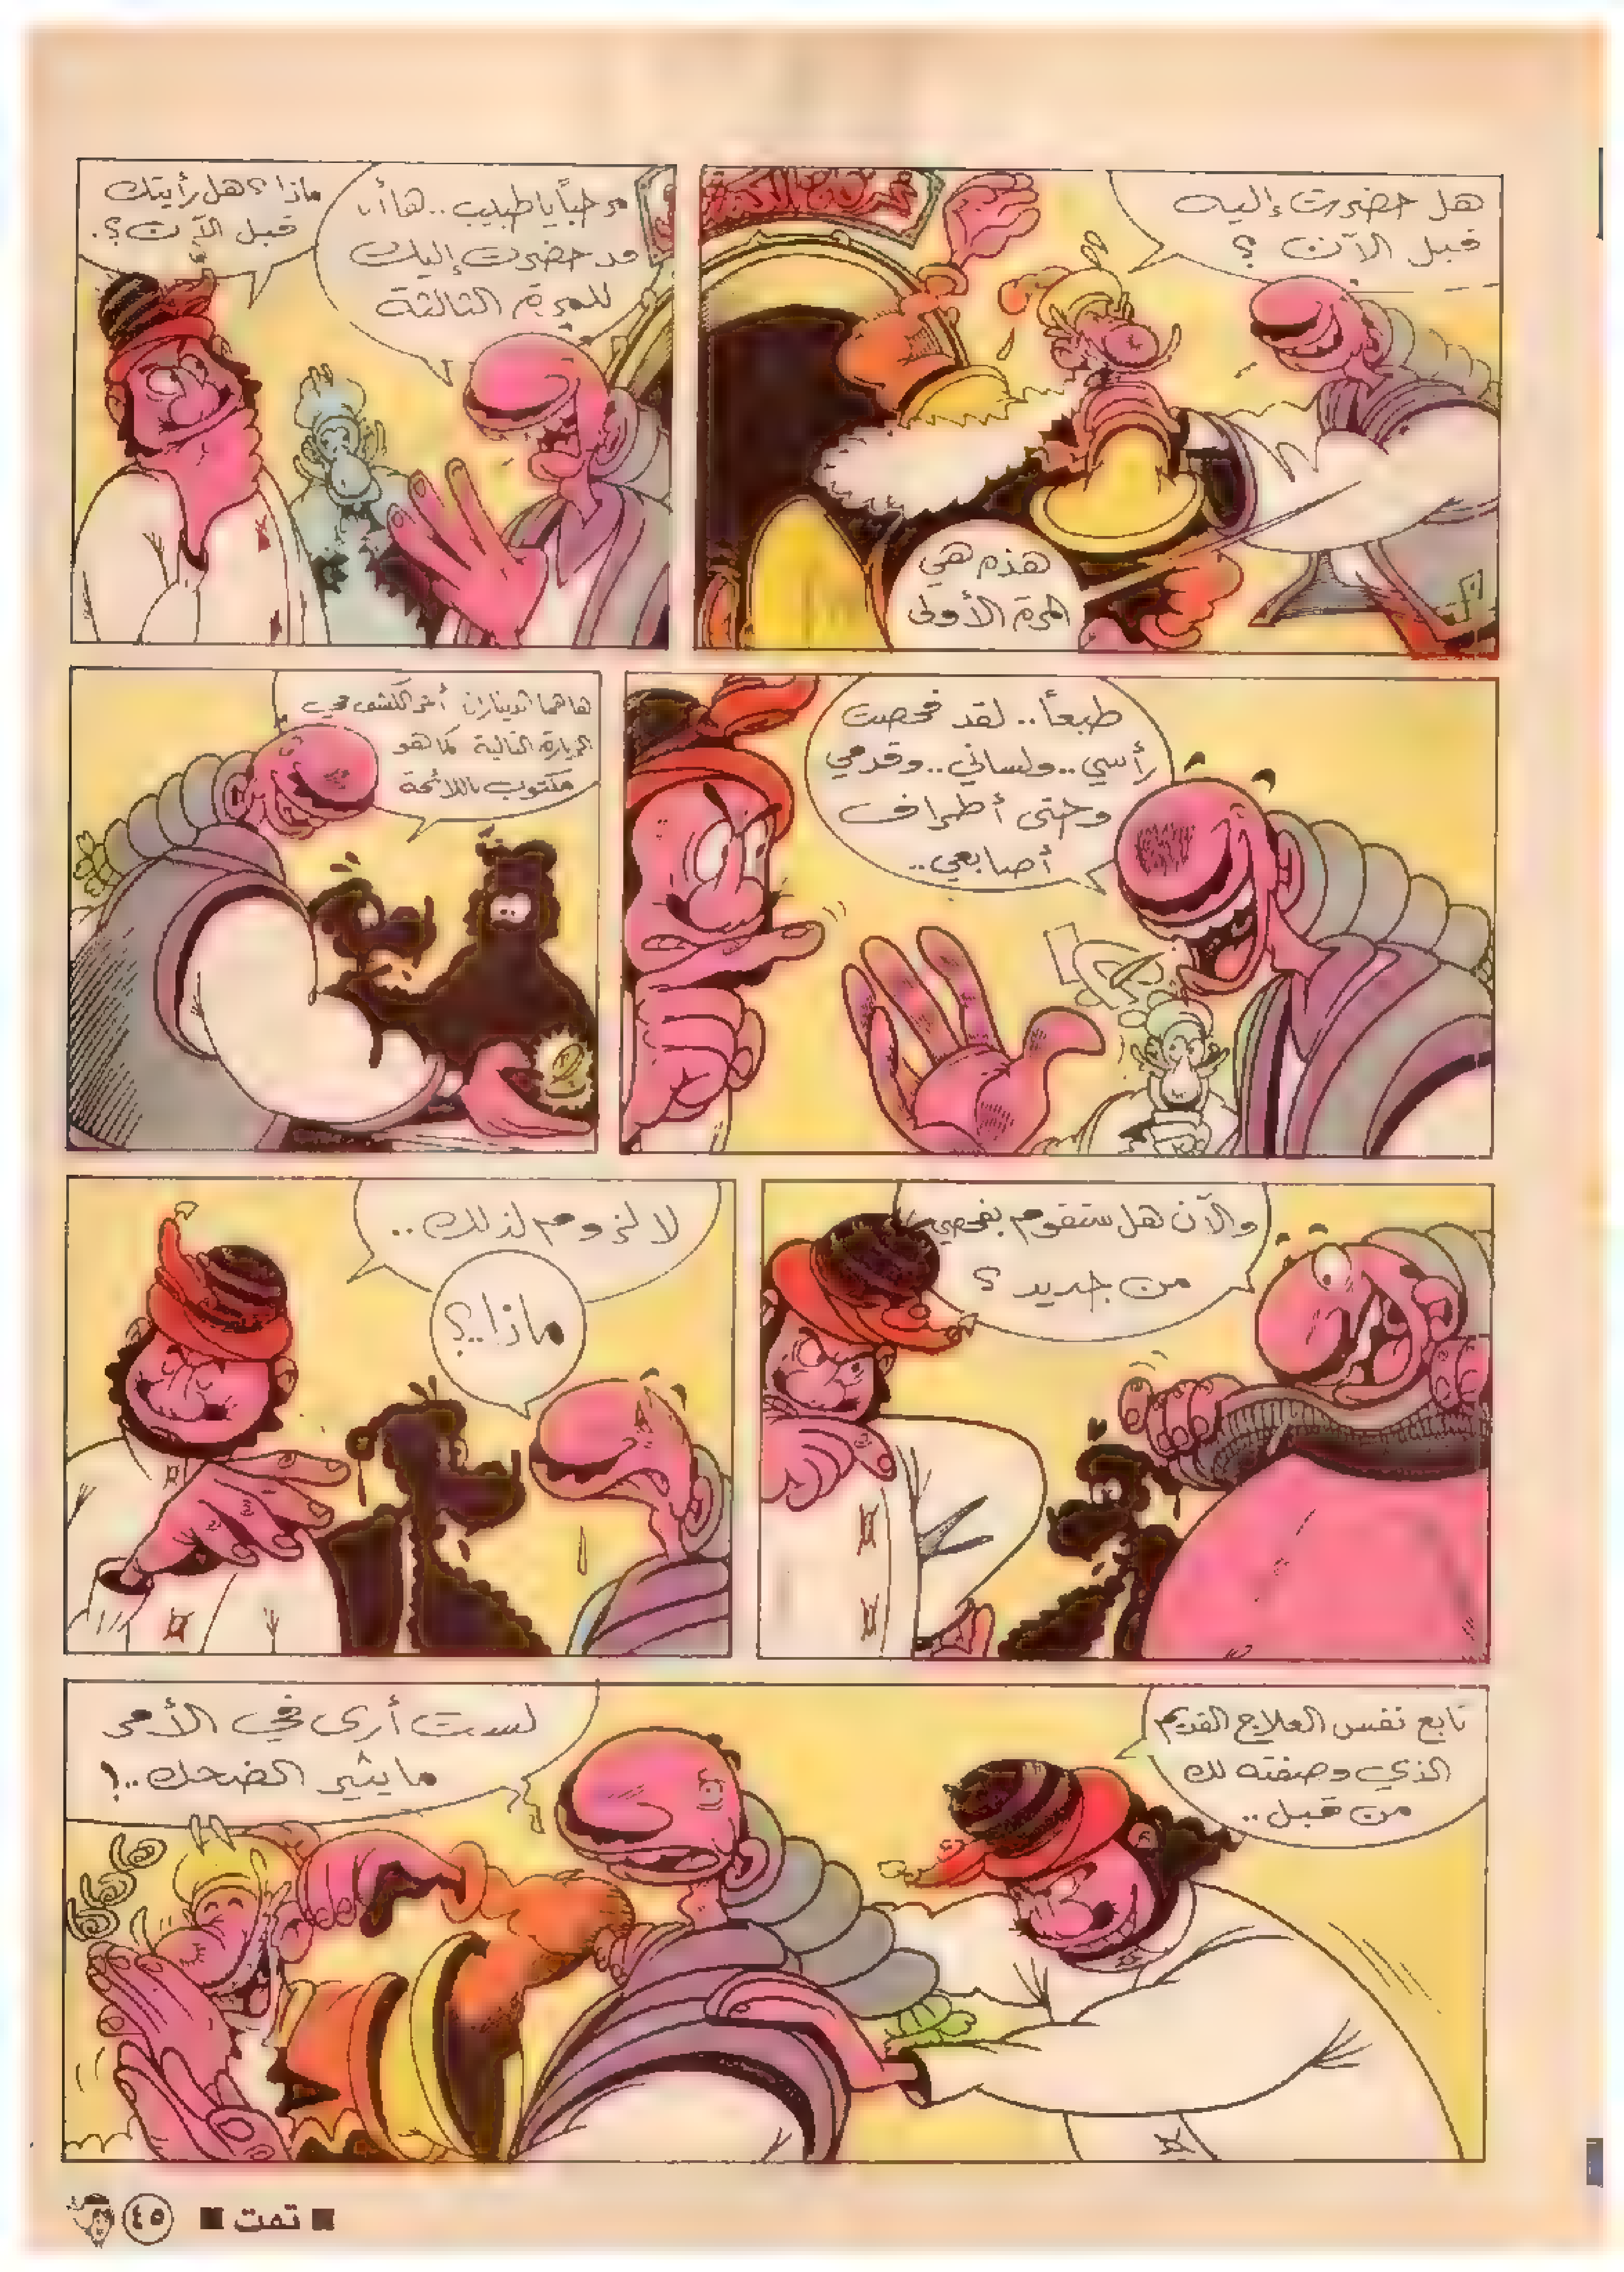 هل حضرت إليه
قبل الآن ؟
هذه هي
المرة الأولى
مرحباً يا طبيب .. ها أنا
قد حضرت إليك
للمرة الثالثة
ماذا ؟ هل رأيتك
قبل الآن ؟.
طبعاً .. لقد فحصت
رأسي .. ولساني .. وقدمي
وحتى أطراف
أصابعي ..
ها هما الديناران أجر الكشف في
الزيارة التالية كما هو
مكتوب باللائحة
والآن هل ستقوم بفحصي
من جديد ؟
لا لزوم لذلك ..
ماذا ..؟
تابع نفس العلاج القديم
الذي وصفته لك
من قبل ..
لست أرى في الأمر
ما يثير الضحك ..!
■ تمت ■
٤٥